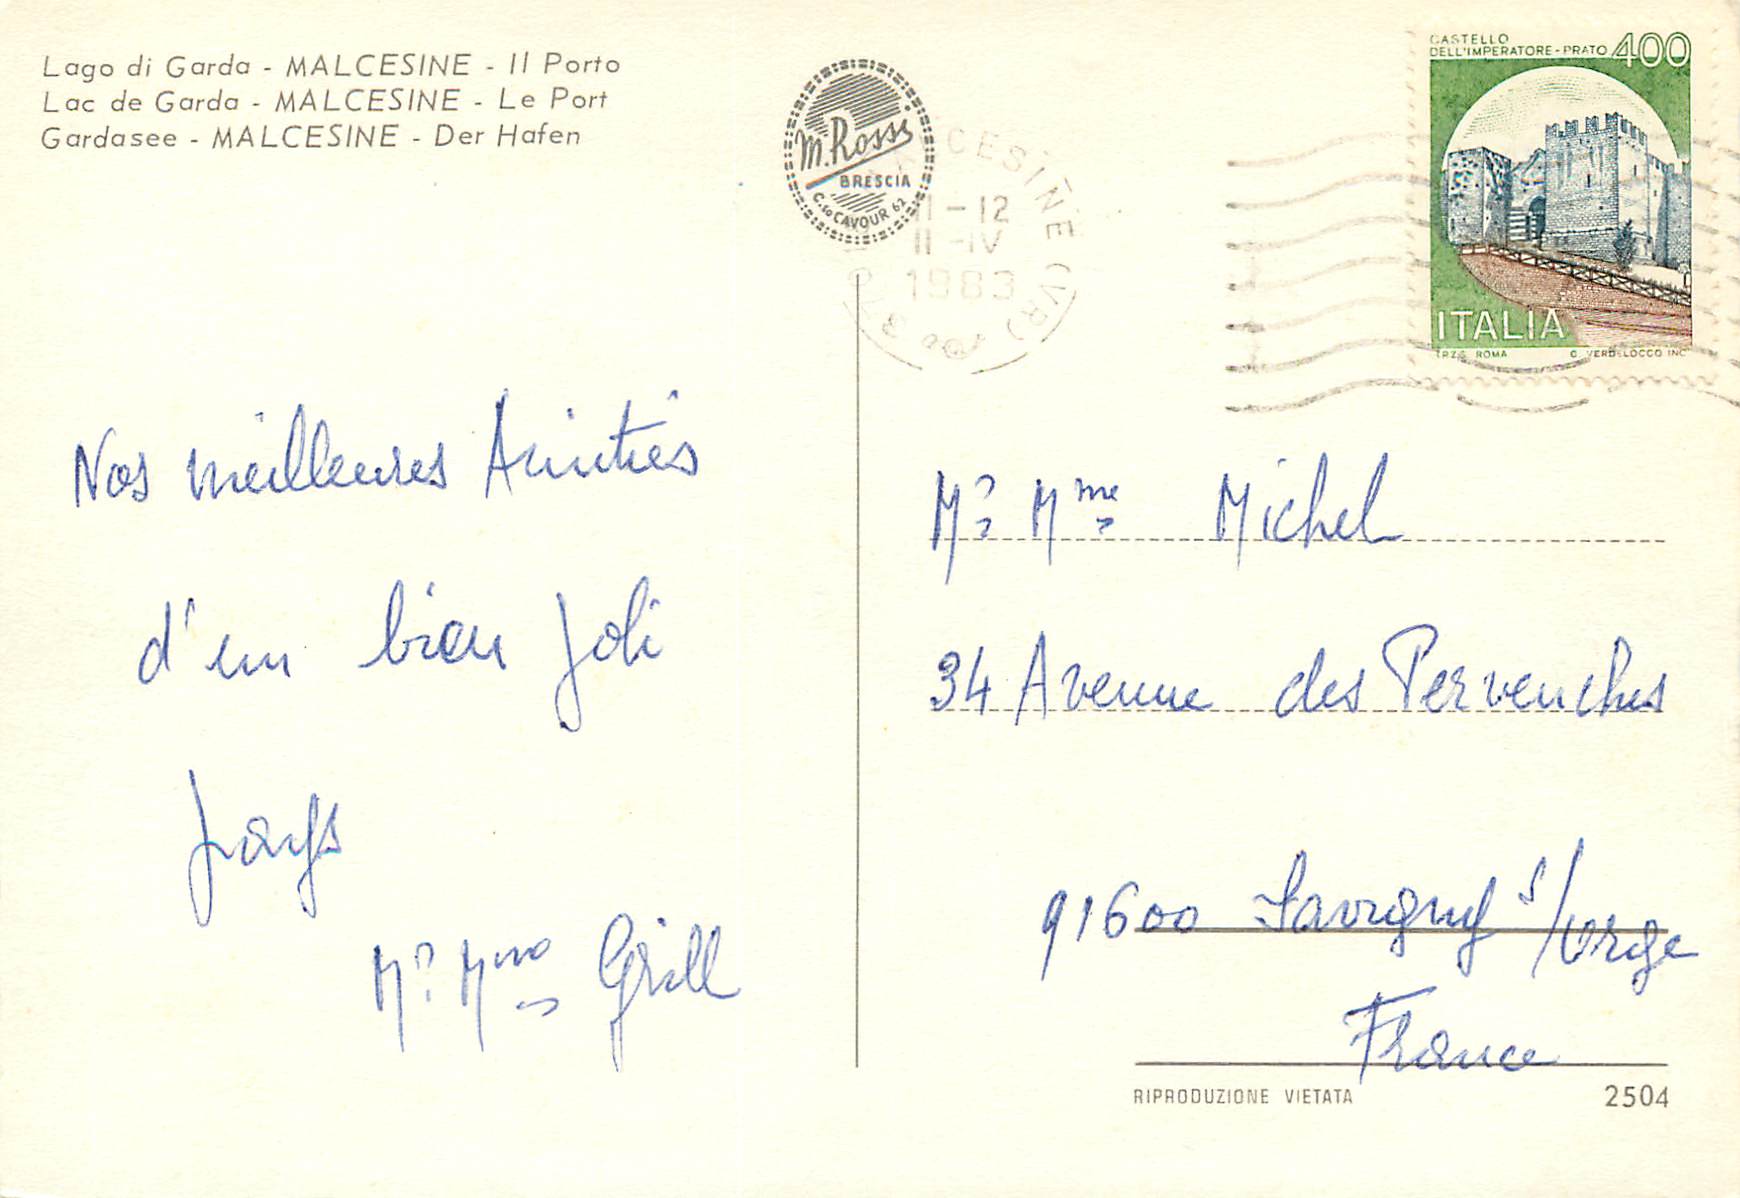 Lago di Garda - MALCESINE - Il Porto
Lac de Garda - MALCESINE - Le Port
Gardasee - MALCESINE - Der Hafen
M. Rossi
BRESCIA
C.so CAVOUR 62
MALCESINE (VR)
11-12
11-IV
1983
CASTELLO
DELL'IMPERATORE - PRATO 400
ITALIA
I.P.Z.S. ROMA C. VERDELOCCO INC.
Nos meilleures Amitiés
d'un bien Joli
pays
Mr Mme Grill
Mr Mme Michel
34 Avenue des Pervenches
91600 Savigny s/Orge
France
RIPRODUZIONE VIETATA 2504